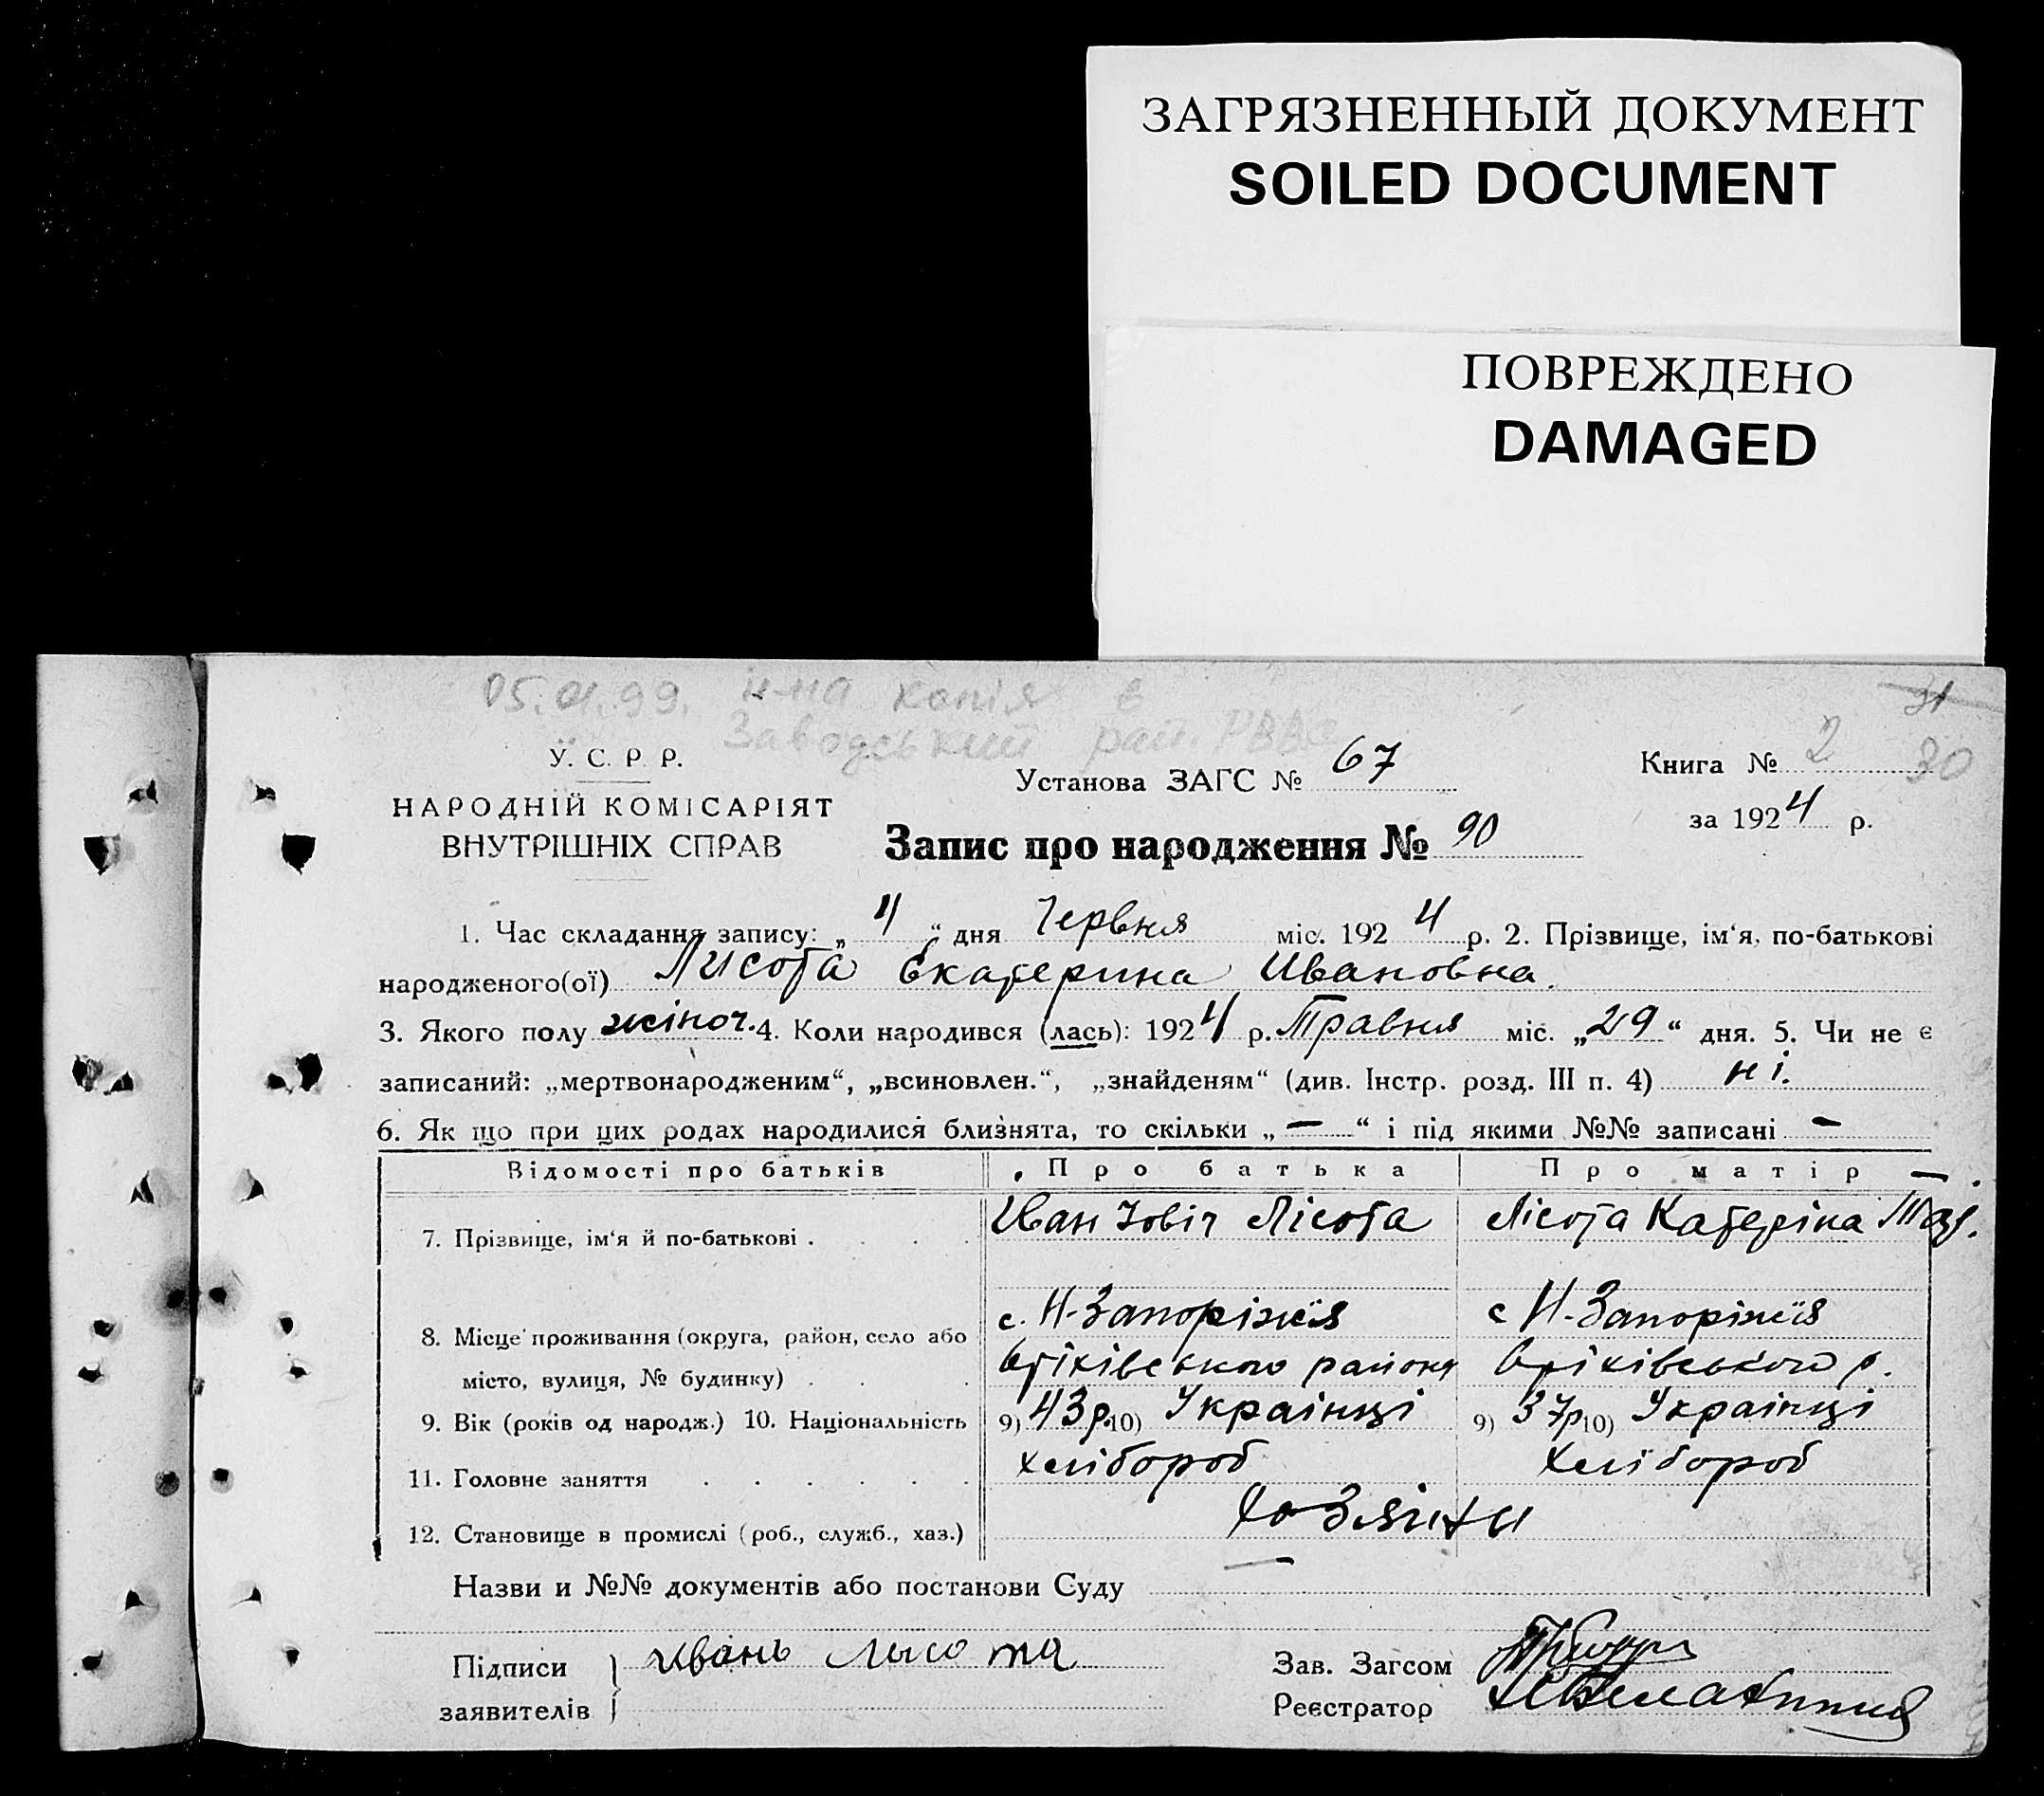 ЗАГРЯЗНЕННЫЙ ДОКУМЕНТ
SOILED DOCUMENT
ПОВРЕЖДЕНО
DAMAGED
31
05.01.99. копія в
Заводський рай.
У. С. Р. Р.
Установа ЗАГС № 67
Книга № 2 30
НАРОДНІЙ КОМІСАРІЯТ
ВНУТРІШНІХ СПРАВ
за 1924 р.
Запис про народження № 90
1. Час складання запису: „ 4 “ дня Червня міс. 1924 р. 2. Прізвище, ім‘я, по-батькові
народженого(ої) Лисота Екатерина Ивановна.
3. Якого полу жіноч. 4. Коли народився (лась): 1924 р. Травня міс. „29“ дня. 5. Чи не є
записаний: „мертвонародженим“, „всиновлен.“, „знайденям“ (див. Інстр. розд. III п. 4) ні.
6. Як що при цих родах народилися близнята, то скільки „ — “ і під якими №№ записані —
Відомості про батьків Про батька Про матір
7. Прізвище, ім‘я й по-батькові . . . . Иван Йовіч Лісота Лісота Катеріна
8. Місце проживання (округа, район, село або с. Н-Запоріжїя с Н-Запоріжїя
місто, вулиця, № будинку) . . . Оріхівського району Оріхівського р.
9. Вік (років од народж.) 10. Національність 9) 43р. 10) Українці 9) 37р 10) Українці
11. Головне заняття . . . . . . хлібороб хлібороб
12. Становище в промислі (роб., служб., хаз.) Хозяіни
Назви и №№ документів або постанови Суду —
Підписи Ивань Лысота
заявителів
Зав. Загсом
Реєстратор